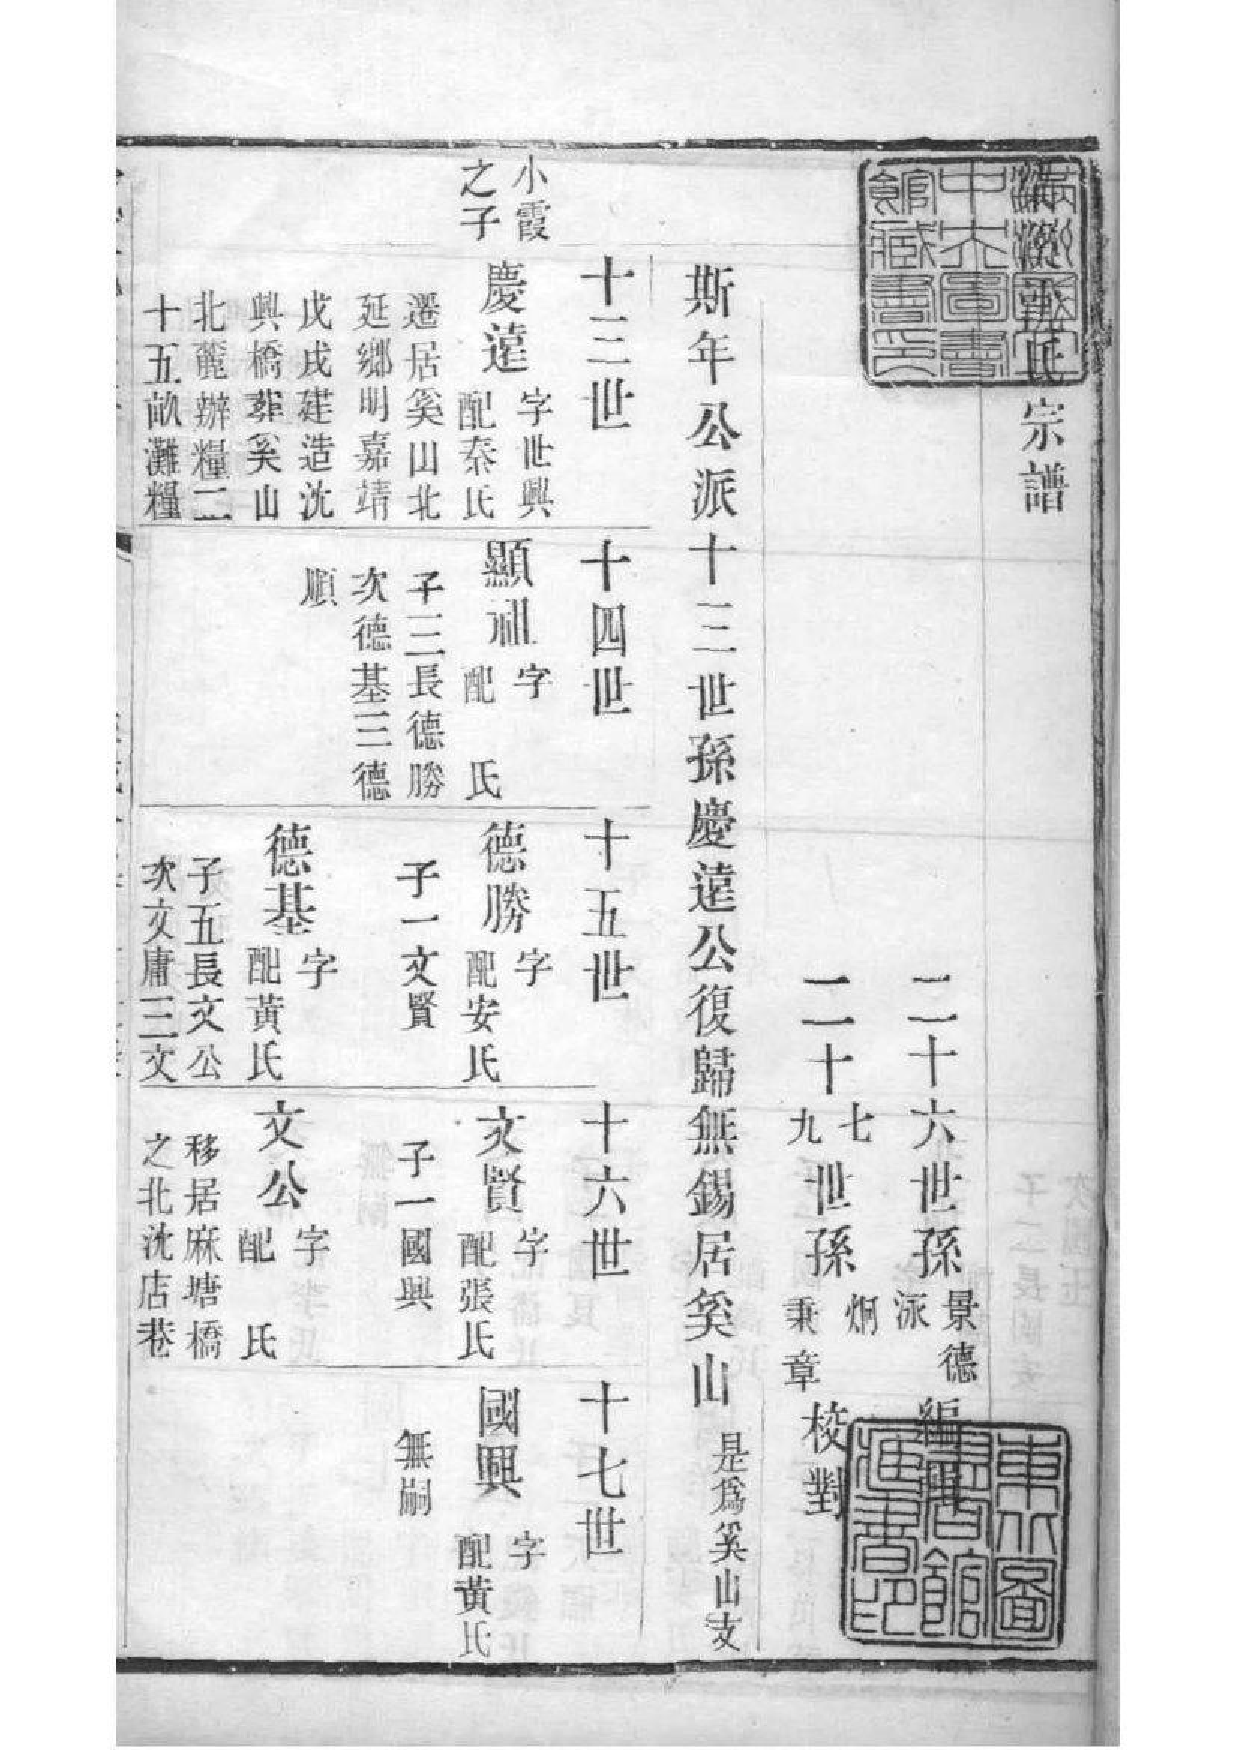 氏宗譜
二十六世孫景德泳編
二十七九世孫炯秉章校對
斯年公派十三世孫慶遠公復歸無錫居奚山是爲奚山支
十三世
小霞之子
慶遠
字世興
配秦氏
遷居奚山北
延鄉明嘉靖
戊戌建造沈
興橋葬奚山
北麓辦糧二
十五畝灘糧
十四世
顯祖
字
配 氏
子三長德勝
次德基三德
順
十五世
德勝
字
配安氏
子一文賢
德基
字
配黃氏
子五長文公
次文庸三文
十六世
文賢
字
配張氏
子一國興
文公
字
配 氏
移居麻塘橋
之北沈店巷
十七世
國興
字
配黃氏
無嗣